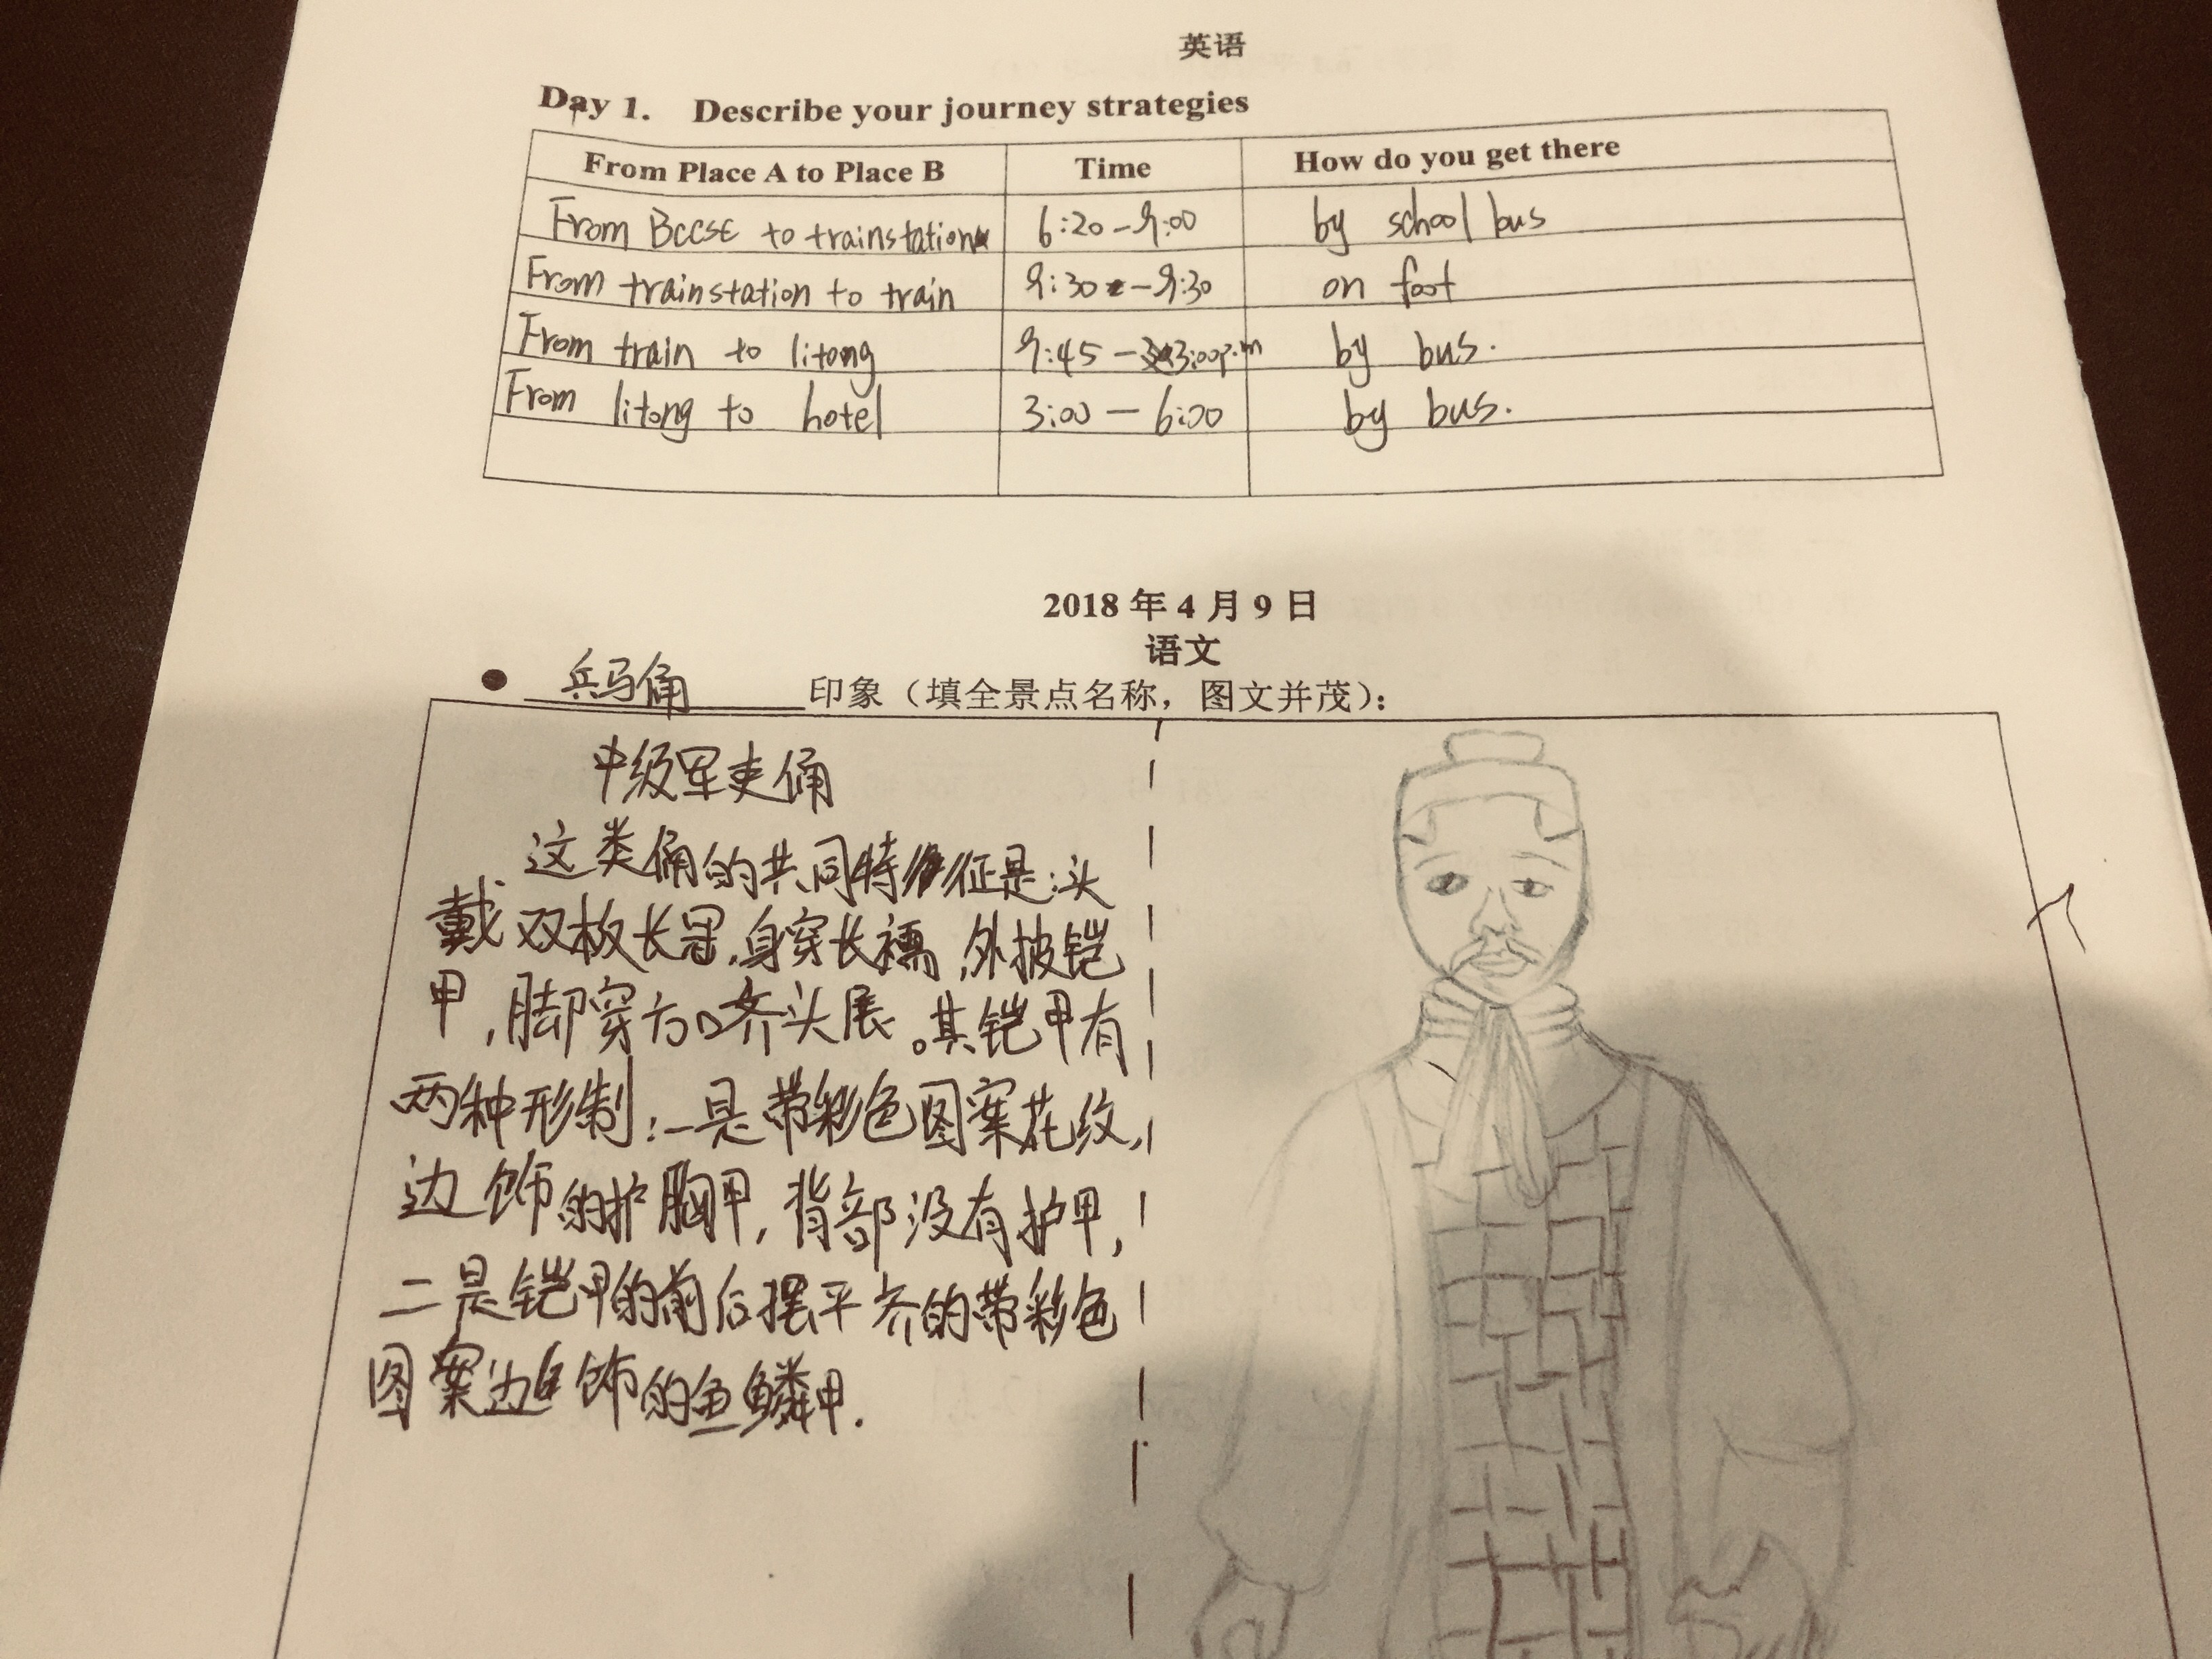 英语
Day 1. Describe your journey strategies
From Place A to Place B Time How do you get there
From BCCSE to trainstation 6:20-9:00 by school bus
From trainstation to train 9:30-9:30 on foot
From train to litong 9:45-3:00p.m by bus.
From litong to hotel 3:00-6:00 by bus.
2018年4月9日
语文
● 兵马俑 印象（填全景点名称，图文并茂）：
中级军吏俑
这类俑的共同特征是:头
戴双板长冠,身穿长襦,外披铠
甲,脚穿方口齐头履。其铠甲有
两种形制:一是带彩色图案花纹,
边饰的护胸甲,背部没有护甲,
二是铠甲的前后摆平齐的带彩色
图案边饰的鱼鳞甲.